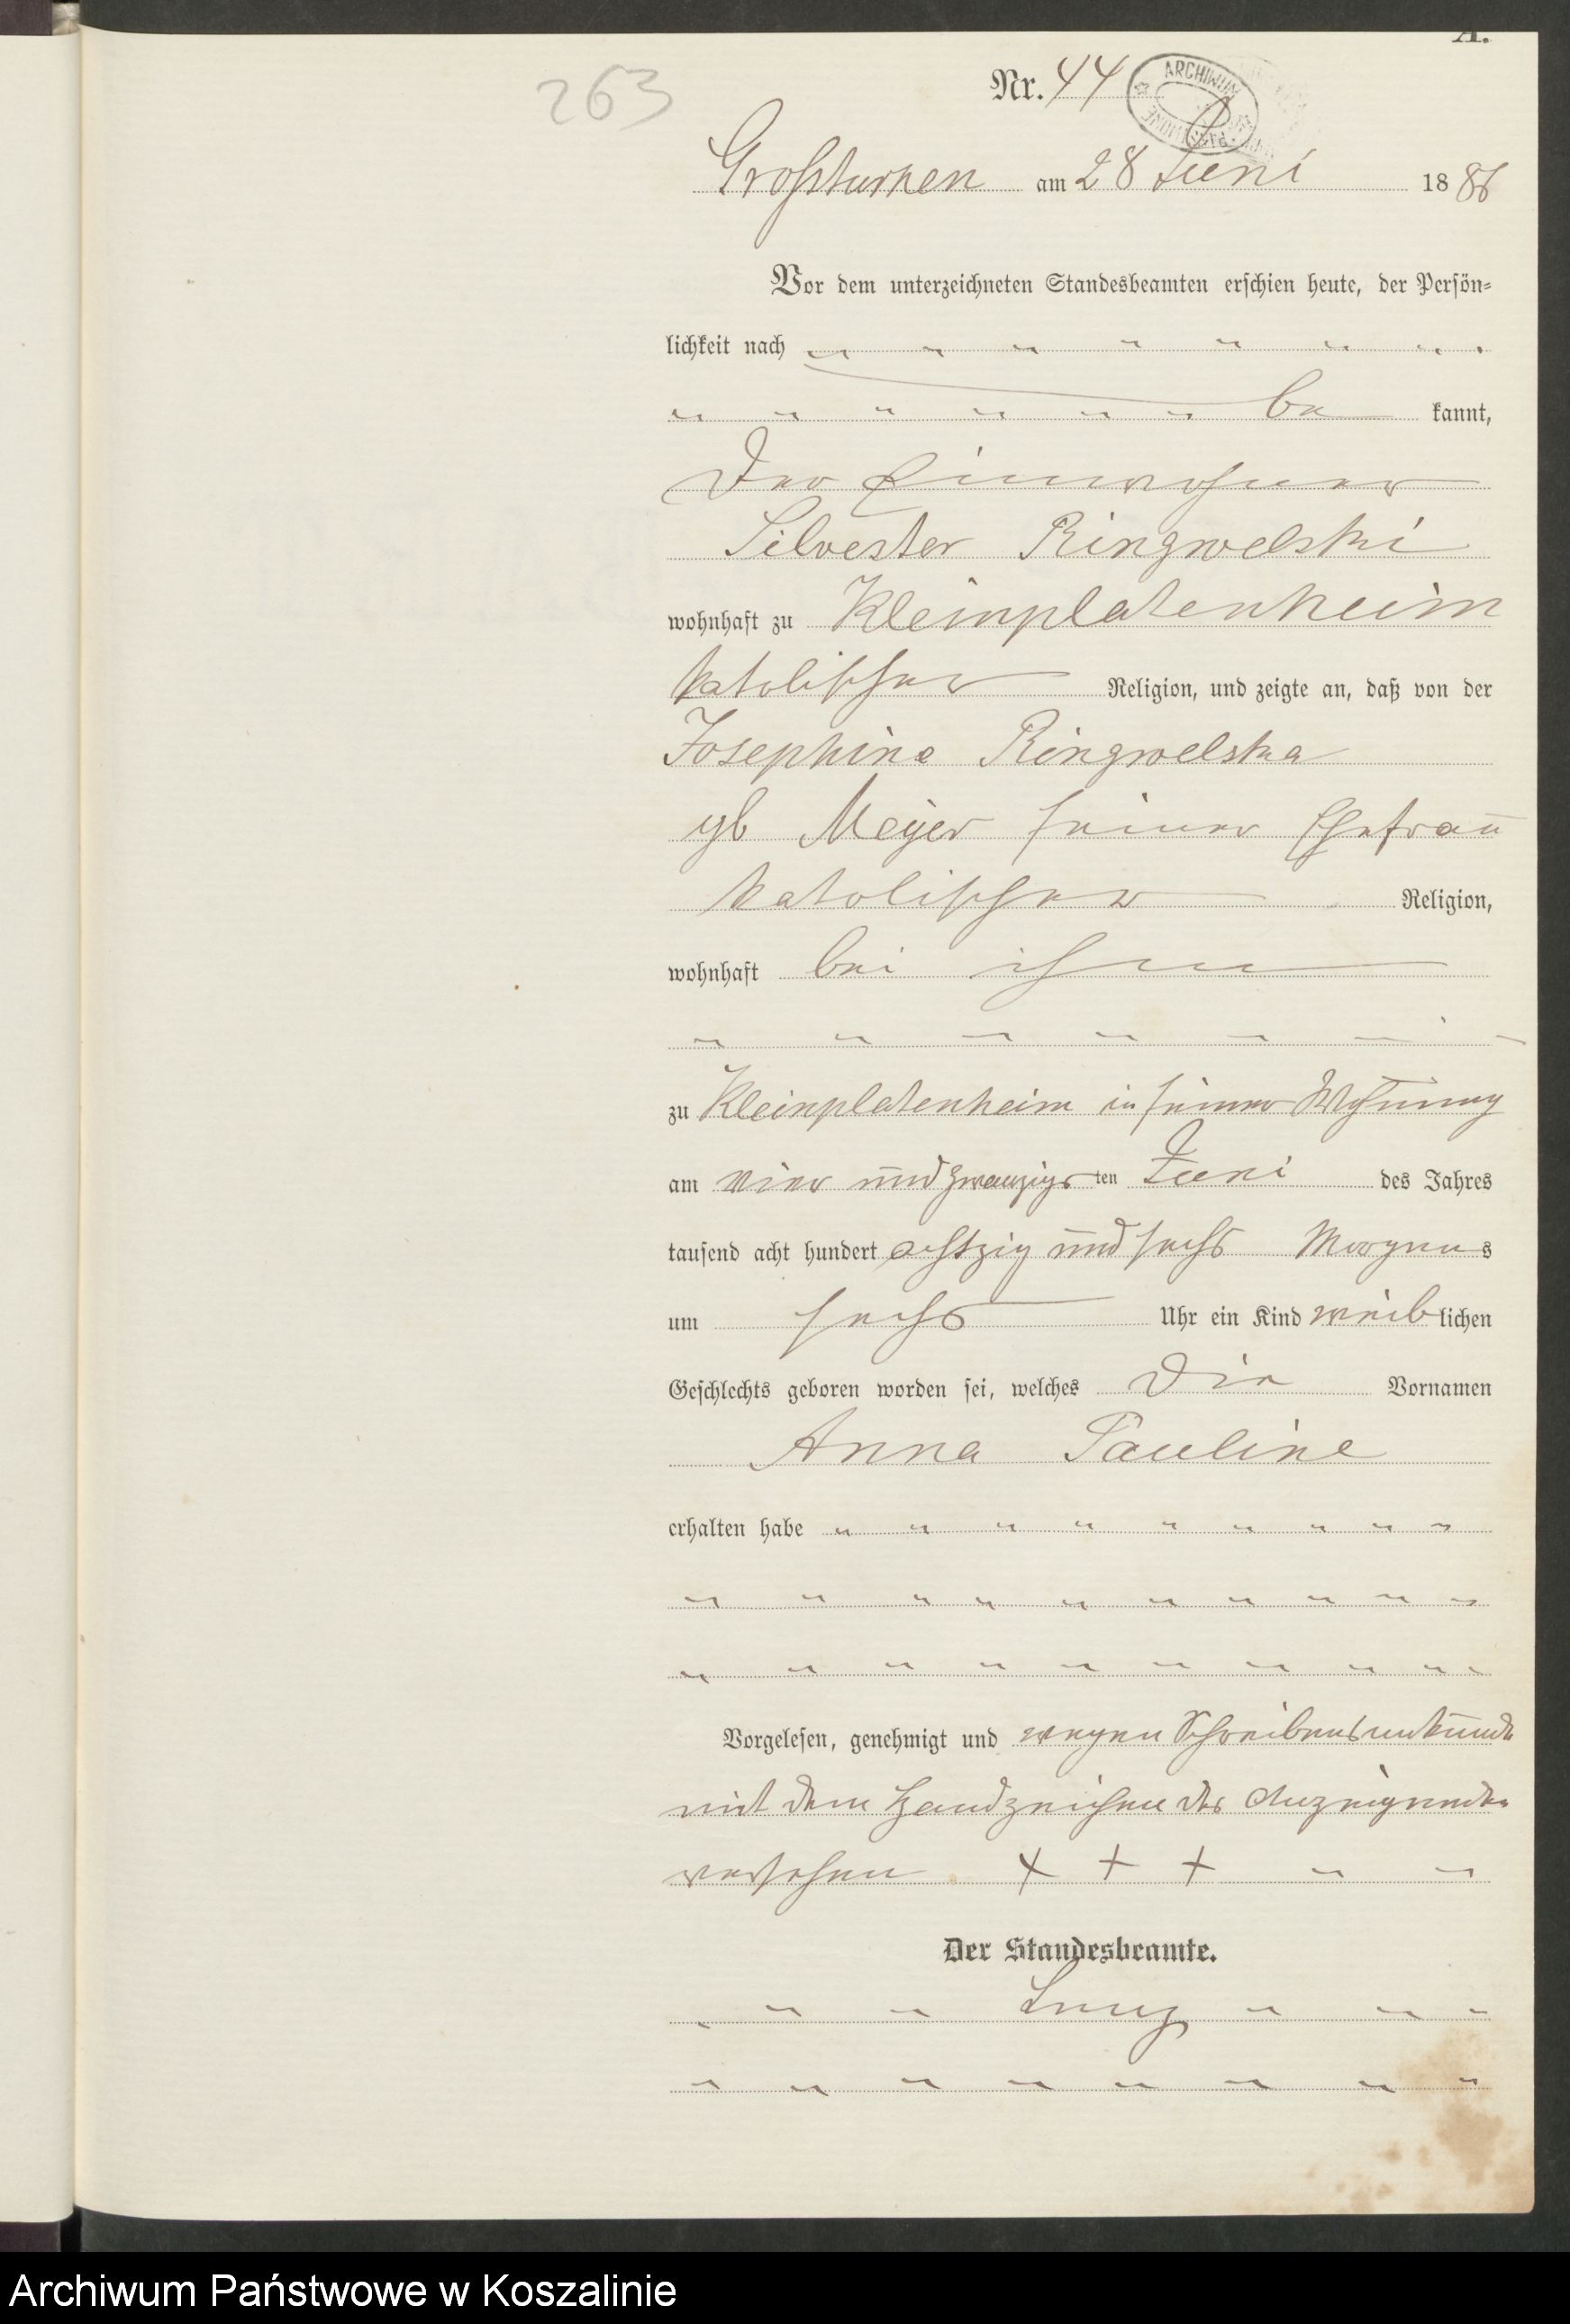 A.
263
Nr. 44
ARCHIWUM
Großturken am 28 Juni 1886
Vor dem unterzeichneten Standesbeamten erschien heute, der Persön-
lichkeit nach " " " " " " " "
" " " " " " be kannt,
Der Einwohner
Silvester Ringwelski
wohnhaft zu Kleinplatenheim
katolischer Religion, und zeigte an, daß von der
Josephine Ringwelska
gb Meyer seiner Ehefrau
katolischer Religion,
wohnhaft bei ihm
" " " " " " "
zu Kleinplatenheim in seiner Wohnung
am vier und zwanzigs ten Juni des Jahres
tausend acht hundert achtzig und sechs Morgens
um sechs Uhr ein Kind weib lichen
Geschlechts geboren worden sei, welches die Vornamen
Anna Pauline
erhalten habe " " " " " " " " "
" " " " " " " " " "
" " " " " " " " " "
Vorgelesen, genehmigt und wegen Schreibensunkunde
mit dem Handzeichen des Anzeigenden
versehen + + + " "
Der Standesbeamte.
" " " " " "
" " " " " " " "
Archiwum Państwowe w Koszalinie